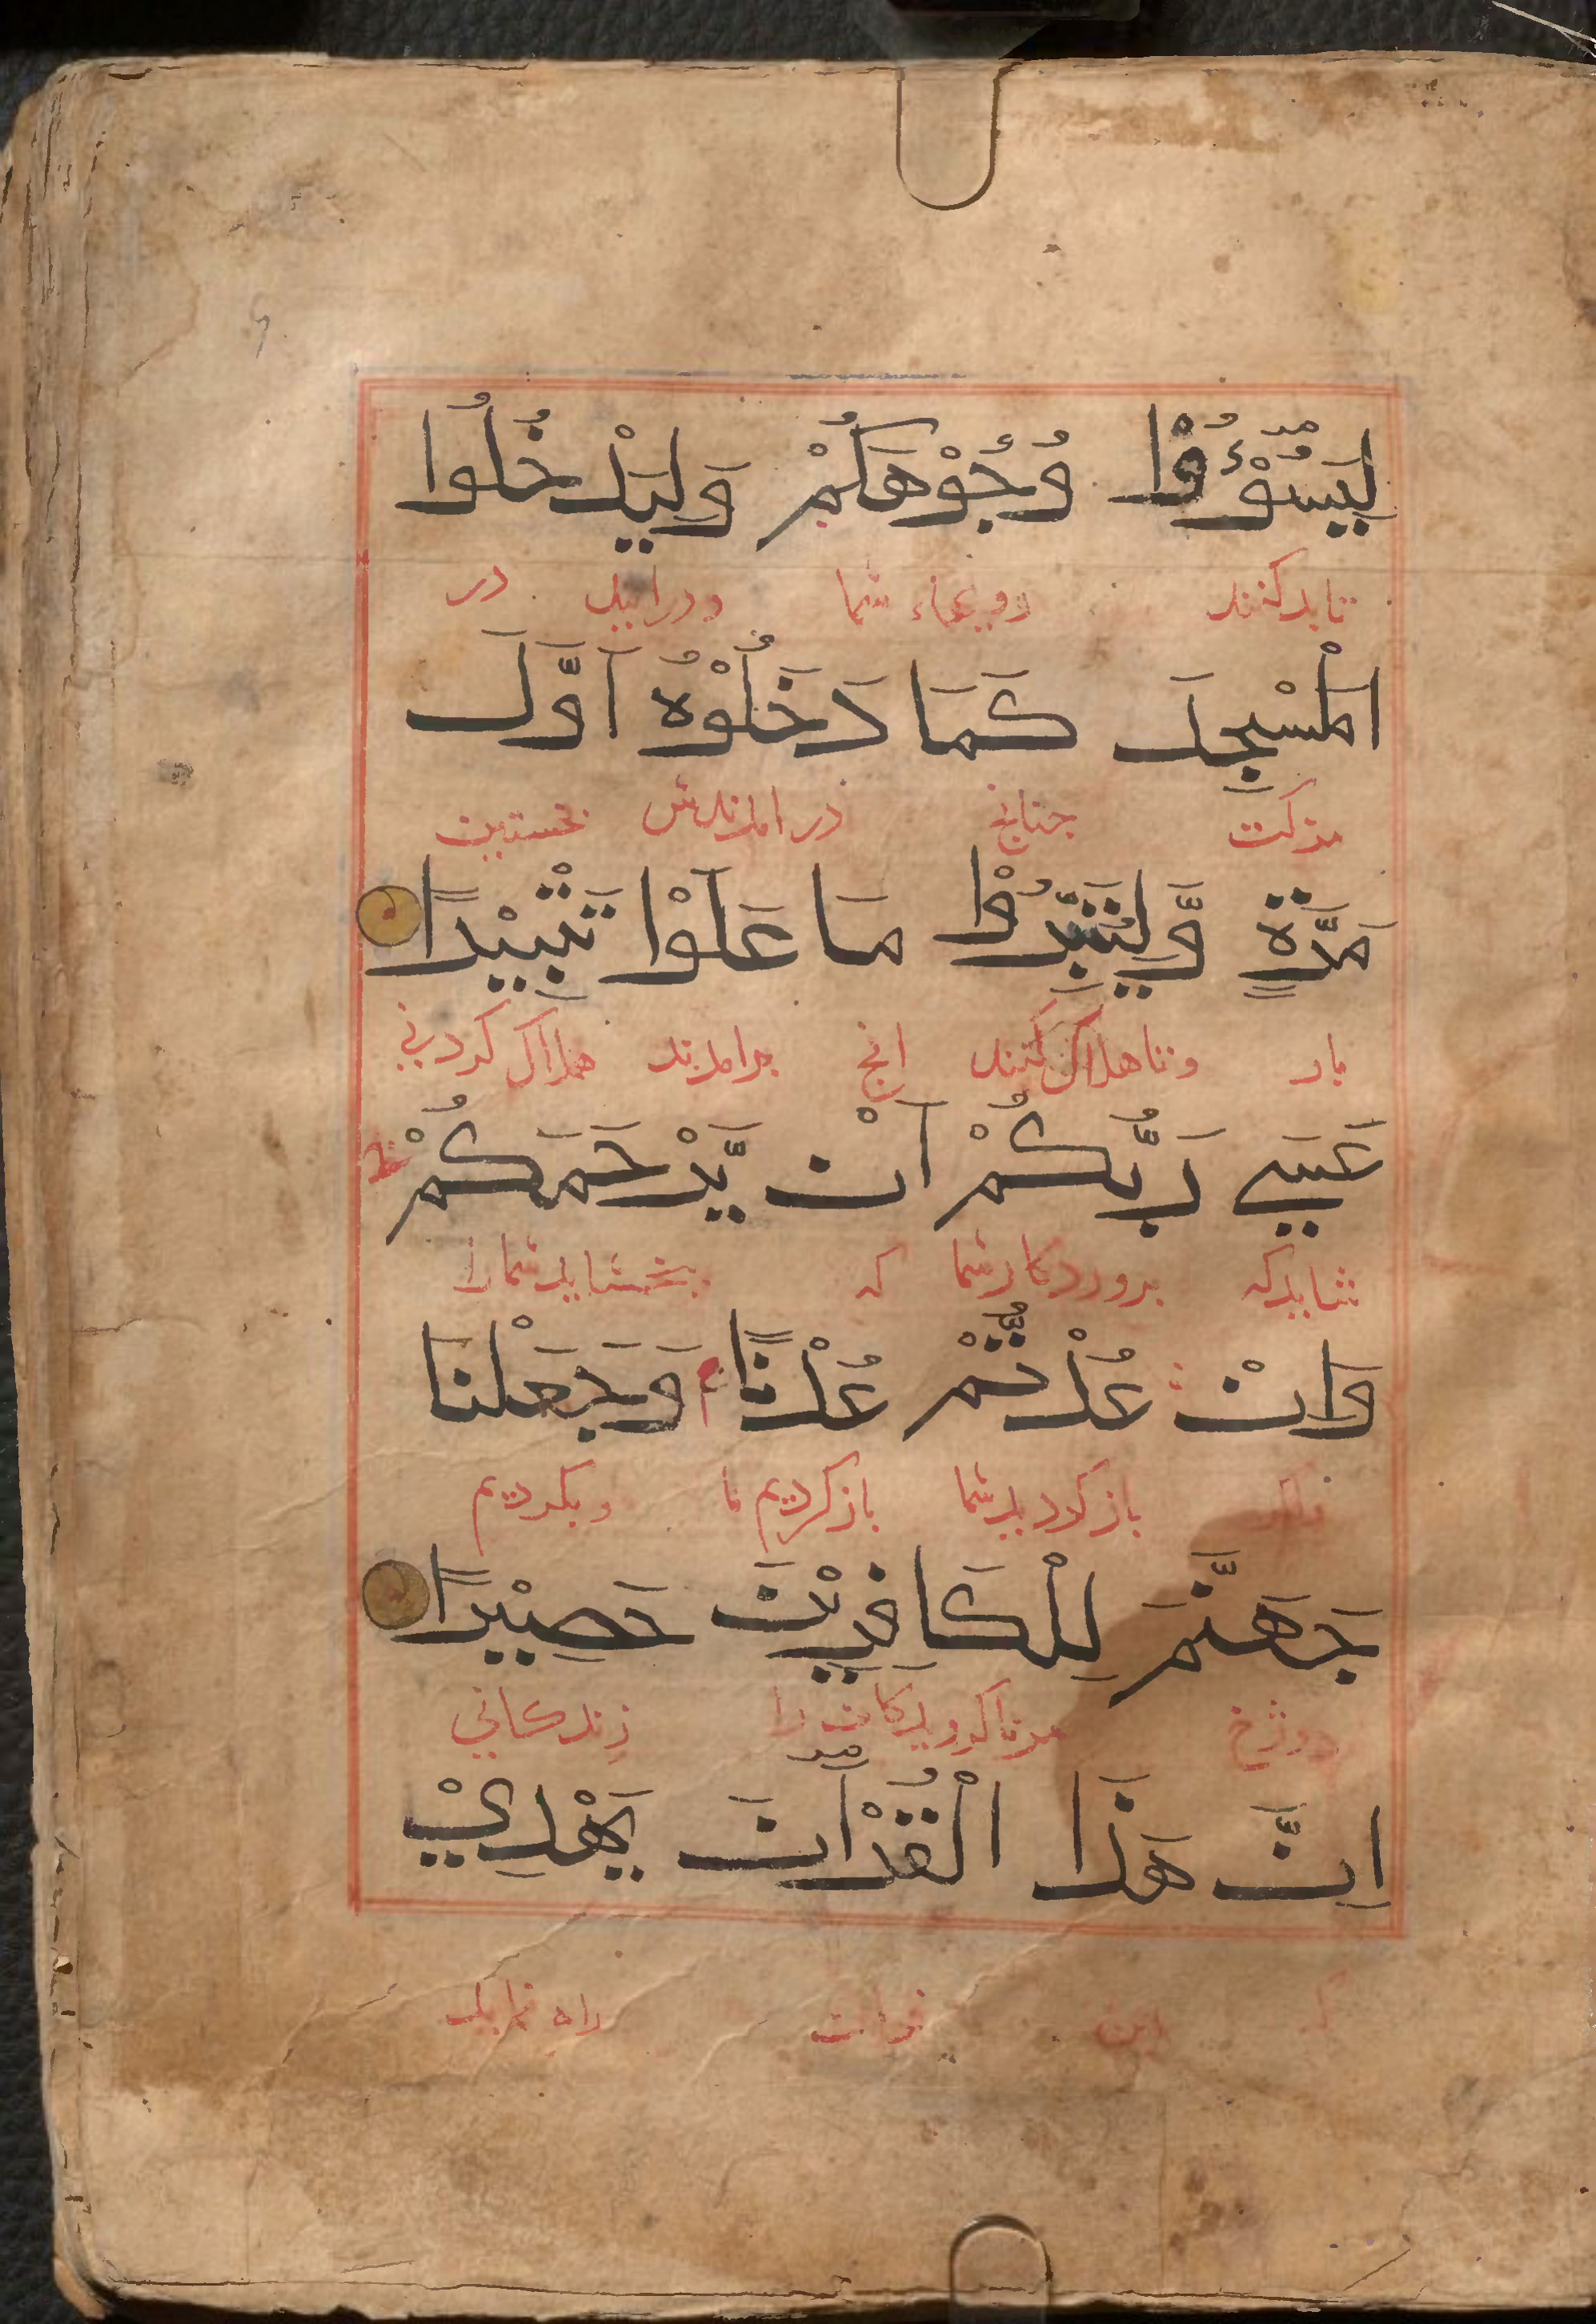 لِيَسُوْءُوْا وُجُوْهَكُمْ وَلِيَدْخُلُوا
تا بد کنند رویهاء شما و درایند در
الْمَسْجِدَ كَمَا دَخَلُوْهُ اَوَّلَ
مزکت جنانج در امدندش نخستین
مَرَّةٍ وَّلِيُتَبِّرُوْا مَا عَلَوْا تَتْبِيْرًا
بار و تا هلاک کنند انج برامدند هلاک کردنی
عَسٰي رَبُّكُمْ اَنْ يَّرْحَمَكُمْ
شاید که بروردکار شما که ببخشاید شما را
وَاِنْ عُدْتُّمْ عُدْنَا وَجَعَلْنَا
باز کردید شما باز کردیم ما و بکردیم
جَهَنَّمَ لِلْكَافِرِيْنَ حَصِيْرًا
دوزخ مرناکرویدکان را زندکانی
اِنَّ هَذَا الْقُرْاٰنَ يَهْدِيْ
این قران راه نماید